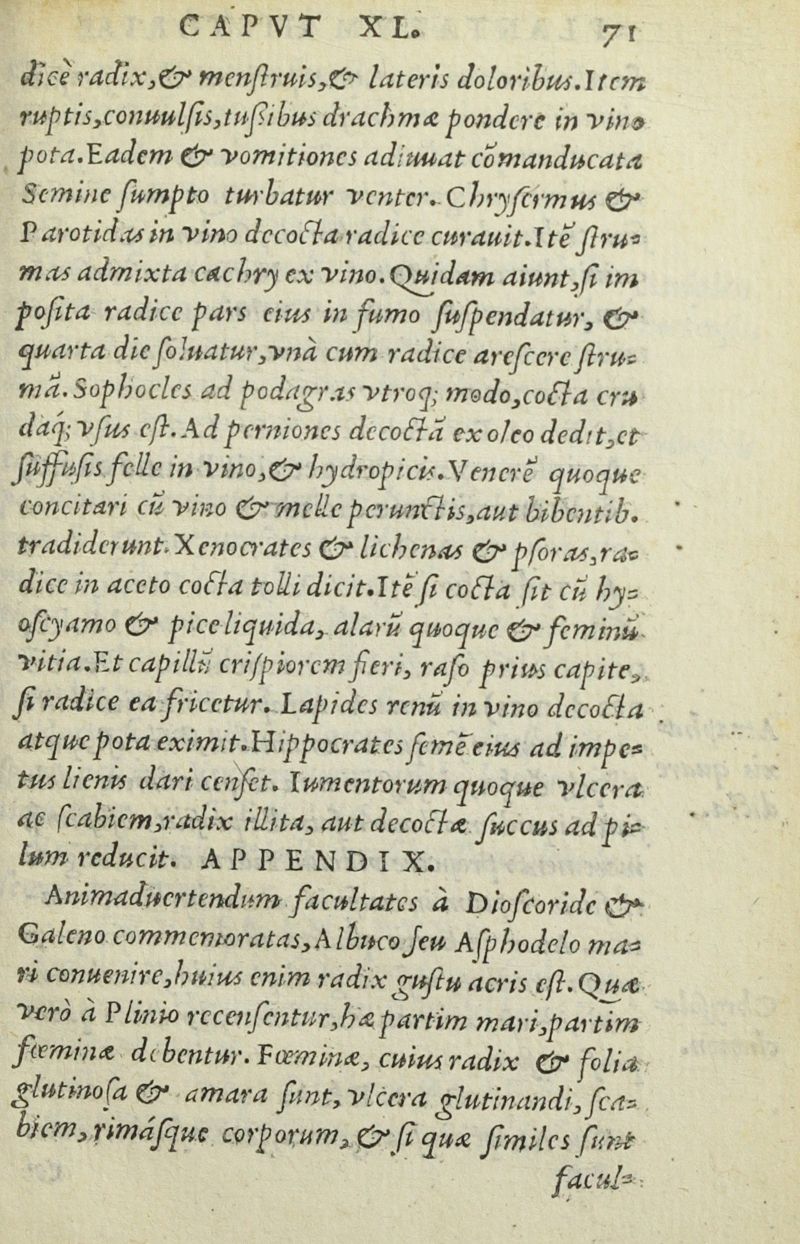 CAPVT XL. 71
dicè radix, & menſtruis, & lateris doloribus. Item
ruptis, conuulſis, tuſsibus drachmæ pondere in vino
pota. Eadem & vomitiones adiuuat cõmanducata
Semine ſumpto turbatur venter. Chryſermus &
Parotidas in vino decocta radice curauit. Itẽ ſtru-
mas admixta cachry ex vino. Quidam aiunt, ſi im
poſita radice pars eius in fumo ſuſpendatur, &
quarta die ſoluatur, vnà cum radice areſcere ſtru-
mã. Sophocles ad podagras vtroq; modo, cocta cru
daq́; vſus eſt. Ad perniones decoctã ex oleo dedit, et
ſuffuſis felle in vino, & hydropicis. Venerẽ quoque
concitari cũ vino & melle perunctis, aut bibentib.
tradiderunt. Xenocrates & lichenas & pſoras, ra-
dice in aceto cocta tolli dicit. Itẽ ſi cocta ſit cũ hy-
oſcyamo & pice liquida, alarũ quoque & feminũ
vitia. Et capillũ criſpiorem fieri, raſo prius capite,
ſi radice ea fricetur. Lapides renũ in vino decocta
atque pota eximit. Hippocrates ſemẽ eius ad impe-
tus lienis dari cenſet. Iumentorum quoque vlcera
ac ſcabiem, radix illita, aut decoctæ ſuccus ad pi-
lum reducit. APPENDIX.
Animaduertendum facultates à Dioſcoride &
Galeno commemoratas, Albuco ſeu Aſphodelo ma-
ri conuenire, huius enim radix guſtu acris eſt. Quæ
verò à Plinio recenſentur, hæ partim mari, partim
fœminæ debentur. Fœminæ, cuius radix & folia
glutinoſa & amara ſunt, vlcera glutinandi, ſca-
biem, rimáſque corporum, & ſi quæ ſimiles ſunt
facul-